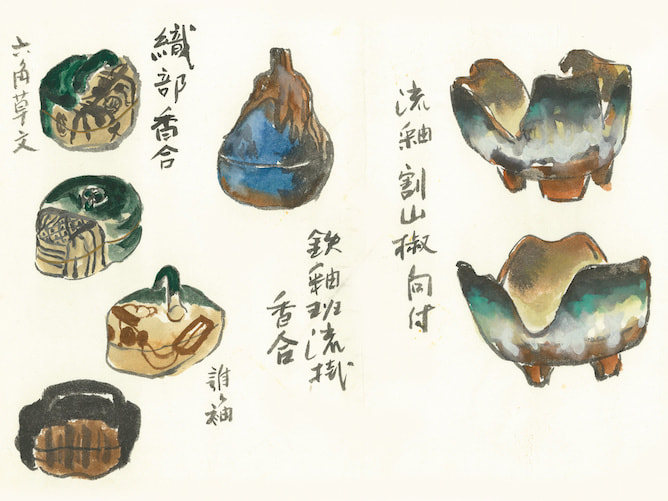 流釉割山椒向付
鉄釉斑流掛
香合
織部香合
誰ヶ袖
六角草文